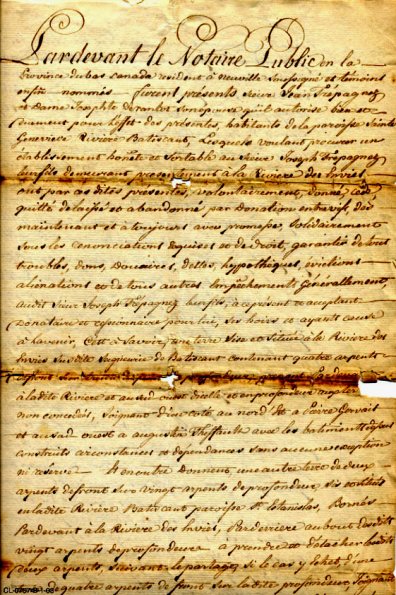 Pardevant le Notaire Public en la
Province du bas Canada resident à Neuville Soussigné et témoins
enfin nommés furent présents Sieur Jean Trépagnez
et Dame son Epouse qu'il autorise bien et
dument pour l'éffet des présentes, habitants de la paroisse Sainte
Genevieve Rivière Batiscant, Lesquels voulant procurer un
établissement honête et véritable au Sieur Joseph Trépagnez
leur fils demeurant présentement à la Riviere des Envies
ont par ces dites présentes, volontairement, donné, cédé
quitté délaissé et abandonné par Donation entrevifs, dès
maintenant et à toujours avec promesse Solidairement
sous les renonciations requises et de droit, garantir de tout
troubles, dons, Douaires, Dettes, hypothèques, évictions
aliénations et de tous autres Empêchements Généralement,
audit Sieur Joseph Trépagnez leur fils, à ce présent et acceptant
Donataire et pour lui, ses hoirs et ayant cause
à l'avenir, C'est à Savoir, une terre Sise et Située à la Rivière des
Envies Susdite Seigneurie de Batiscant contenant quatre arpents
de front sur
à la dite Rivière et au sud ouest d'icelle et en profondeur aux
non concédés, joignant d'un coté au nord Est à Pierre Gervais
et au sud ouest à augustin Thiffault avec les batiments dessus
construits circonstances et dépendances sans aucune exception
ni réserve — Et encontre Donnent une autre terre de deux
arpents de front sur vingt arpents de profondeur, sis et située
en ladite Rivière Batiscant paroisse St. Stanislas, Bornés
Pardevant à la Rivière des Envies, Par derrière au bout desdits
vingt arpents de profondeur à prendre et détacher lesdits
deux arpents, suivant le partage, si le cas y échet d'une
de quatre arpents de front sur ladite profondeur, joignant
CL-075NB-1-03